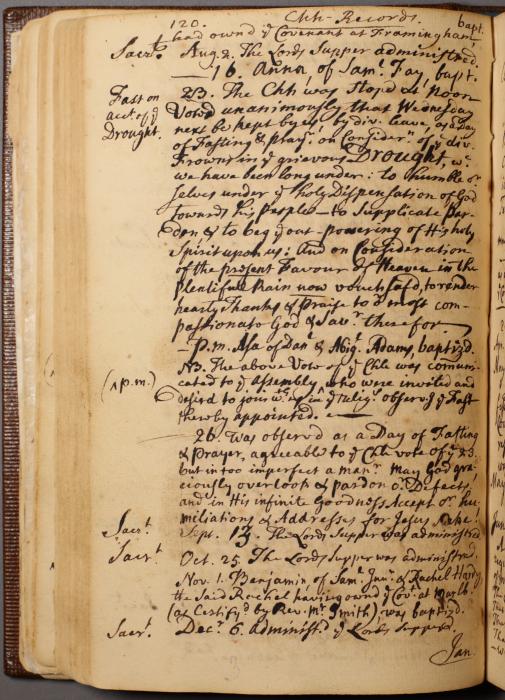 120. Chh-Records. bapt.
had own'd ye Covenant at Framingham
Sacrt. Aug. 2. The Lords Supper administred.
— 16. Anna, of Saml. Fay, bapt.
23. The Chh was Stop'd at noon
Fast on Voted unanimously that Wednesday
acct. of ye next be kept by us by div. leave, as a Day
Drought. of Fasting & pray'r on Considern. of ye div.
Frowns in ye grievous Drought, wc.
we have been long under: to humble or.
selves under ye holy Dispensation of God
towards his People — to Supplicate Par-
don & to beg ye out-powering of His holy
Spirit upon us: And on Consideration
of the present Favour of Heaven in the
plentifull Rain now vouchsafd, to render
hearty Thanks & Praise to ye most com-
passionate God & Savr. therefor —
— P.m. Asa of Danl. & Abigl. Adams, baptiz'd.
NB. The above Vote of ye Chh was comuni-
(^ p.m.) cated to ye Assembly, who were invited and
desir'd to join wth. us in ye relig. observce. of ye Fast
thereby appointed. —
26. Was observ'd as a Day of Fasting
& Prayer, agreeable to ye Chh vote of ye 23.
but in too imperfect a manr. May God gra-
ciously overlook & pardon or. Defects
and in His infinite Goodness Accept or. hu-
miliations & Addresses for Jesus sake!
Sacrt. Sept. 13. The Lords Supper was administred
Sacrt. Oct. 25. The Lords Supper was administred.
Nov. 1. Benjamin of Saml. Junr. & Rachel Hardy
the Said Rachel having own'd ye Cov. at
(as Certify'd by Revd. Mr. Smith) was baptiz'd.
Sacrt. Decr. 6. administd. ye Lords Supper.
Jan.